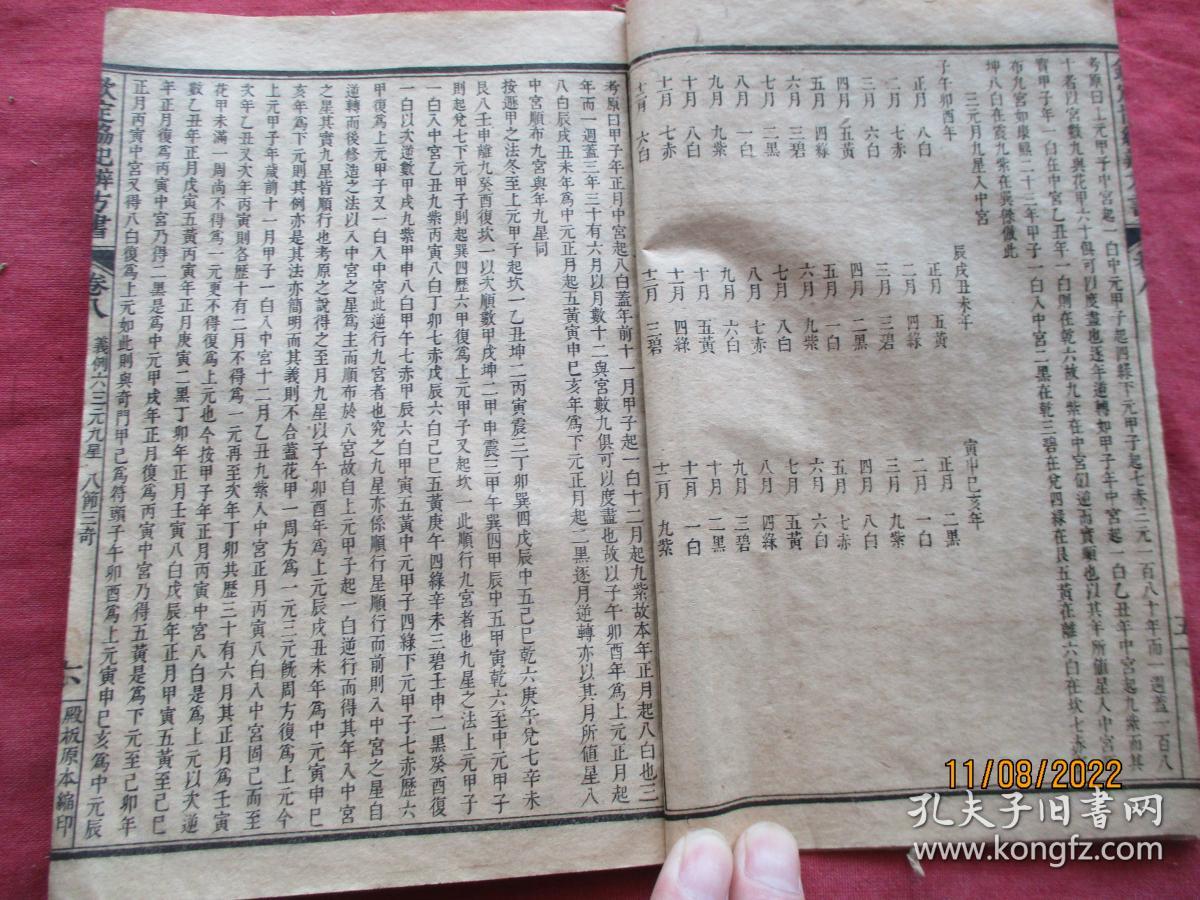 考原曰上元甲子中宮起一白中元甲子起四綠下元甲子起七赤三元一百八十年而一週蓋一百八
十者以宮數九與花甲六十俱可以度盡也逐年逆轉如甲子年中宮起一白乙丑年中宮起九紫而其
實甲子年一白在中宮乙丑年一白則在乾六故九紫在中宮們逆而實順也以其年所值星入中宮
布九宮如康熙二十三年甲子一白入中宮二黑在乾三碧在兌四綠在艮五黃在離六白在坎七赤
坤八白在震九紫在巽餘倣此
三元月九星入中宮
子午卯酉年
正月 八白
二月 七赤
三月 六白
四月 五黃
五月 四綠
六月 三碧
七月 二黑
八月 一白
九月 九紫
十月 八白
十一月 七赤
十二月 六白
辰戌丑未年
正月 五黃
二月 四綠
三月 三碧
四月 二黑
五月 一白
六月 九紫
七月 八白
八月 七赤
九月 六白
十月 五黃
十一月 四綠
十二月 三碧
寅申巳亥年
正月 二黑
二月 一白
三月 九紫
四月 八白
五月 七赤
六月 六白
七月 五黃
八月 四綠
九月 三碧
十月 二黑
十一月 一白
十二月 九紫
考原曰甲子年正月中宮起八白蓋年前十一月甲子起一白十二月起九紫故本年正月起八白也三
年而一週蓋三年三十有六月以月數十二與宮數九俱可以度盡也故以子午卯酉年爲上元正月起
八白辰戌丑未年爲中元正月起五黃寅申巳亥年爲下元正月起二黑逐月逆轉亦以其月所值星入
中宮順布九宮與年九星同
按遯甲之法冬至上元甲子起坎一乙丑坤二丙寅震三丁卯巽四戊辰中五己巳乾六庚午兌七辛未
艮八壬申離九癸酉復坎一以次順數甲戌坤二甲申震三甲午巽四甲辰中五甲寅乾六至中元甲子
則起兌七下元甲子則起巽四歷六甲復爲上元甲子又起坎一此順行九宮者也九星之法上元甲子
一白入中宮乙丑九紫丙寅八白丁卯七赤戊辰六白己巳五黃庚午四綠辛未三碧壬申二黑癸酉復
一白以次逆數甲戌九紫甲申八白甲午七赤甲辰六白甲寅五黃中元甲子四綠下元甲子七赤歷六
甲復爲上元甲子又一白入中宮此逆行九宮者也究之九星亦係順行星順行而前則入中宮之星自
逆轉而後修造之法以入中宮之星爲主而順布於八宮故自上元甲子起一白逆行而得其年入中宮
之星其實九星皆順行也考原之說得之至月九星以子午卯酉年爲上元辰戌丑未年爲中元寅申巳
亥年爲下元則其例亦是其法亦簡明而其義則不合蓋花甲一周方爲一元三元旣周方復爲上元今
上元甲子年歲前十一月甲子一白入中宮十二月乙丑九紫入中宮正月丙寅八白入中宮固已而至
次年乙丑又次年丙寅則各歷十有二月不得爲一元再至次年丁卯共歷三十有六月其正月爲壬寅
花甲未滿一周尚不得爲一元更不得復爲上元也今按甲子年正月丙寅中宮八白是爲上元以次逆
數乙丑年正月戊寅五黃丙寅年正月庚寅二黑丁卯年正月壬寅八白戊辰年正月甲寅五黃至己巳
年正月復爲丙寅中宮乃得二黑是爲中元甲戌年正月復爲丙寅中宮乃得五黃是爲下元至己卯年
正月丙寅中宮又得八白復爲上元如此則與奇門甲己爲符頭子午卯酉爲上元寅申巳亥爲中元辰
欽定協紀辨方書 卷八 義例六三元九星 八節三奇 六 殿板原本縮印
11/08/2022
孔夫子旧书网
www.kongfz.com